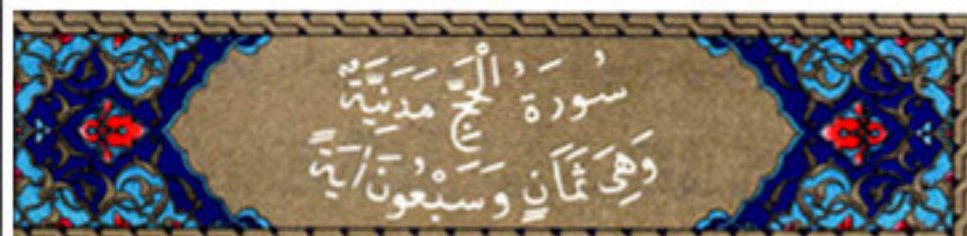 سُورَةُ الْحَجِّ مَدَنِيَّةٌ
وَهِىَ ثَمَانٍ وَسَبْعُونَ ءَايَةً